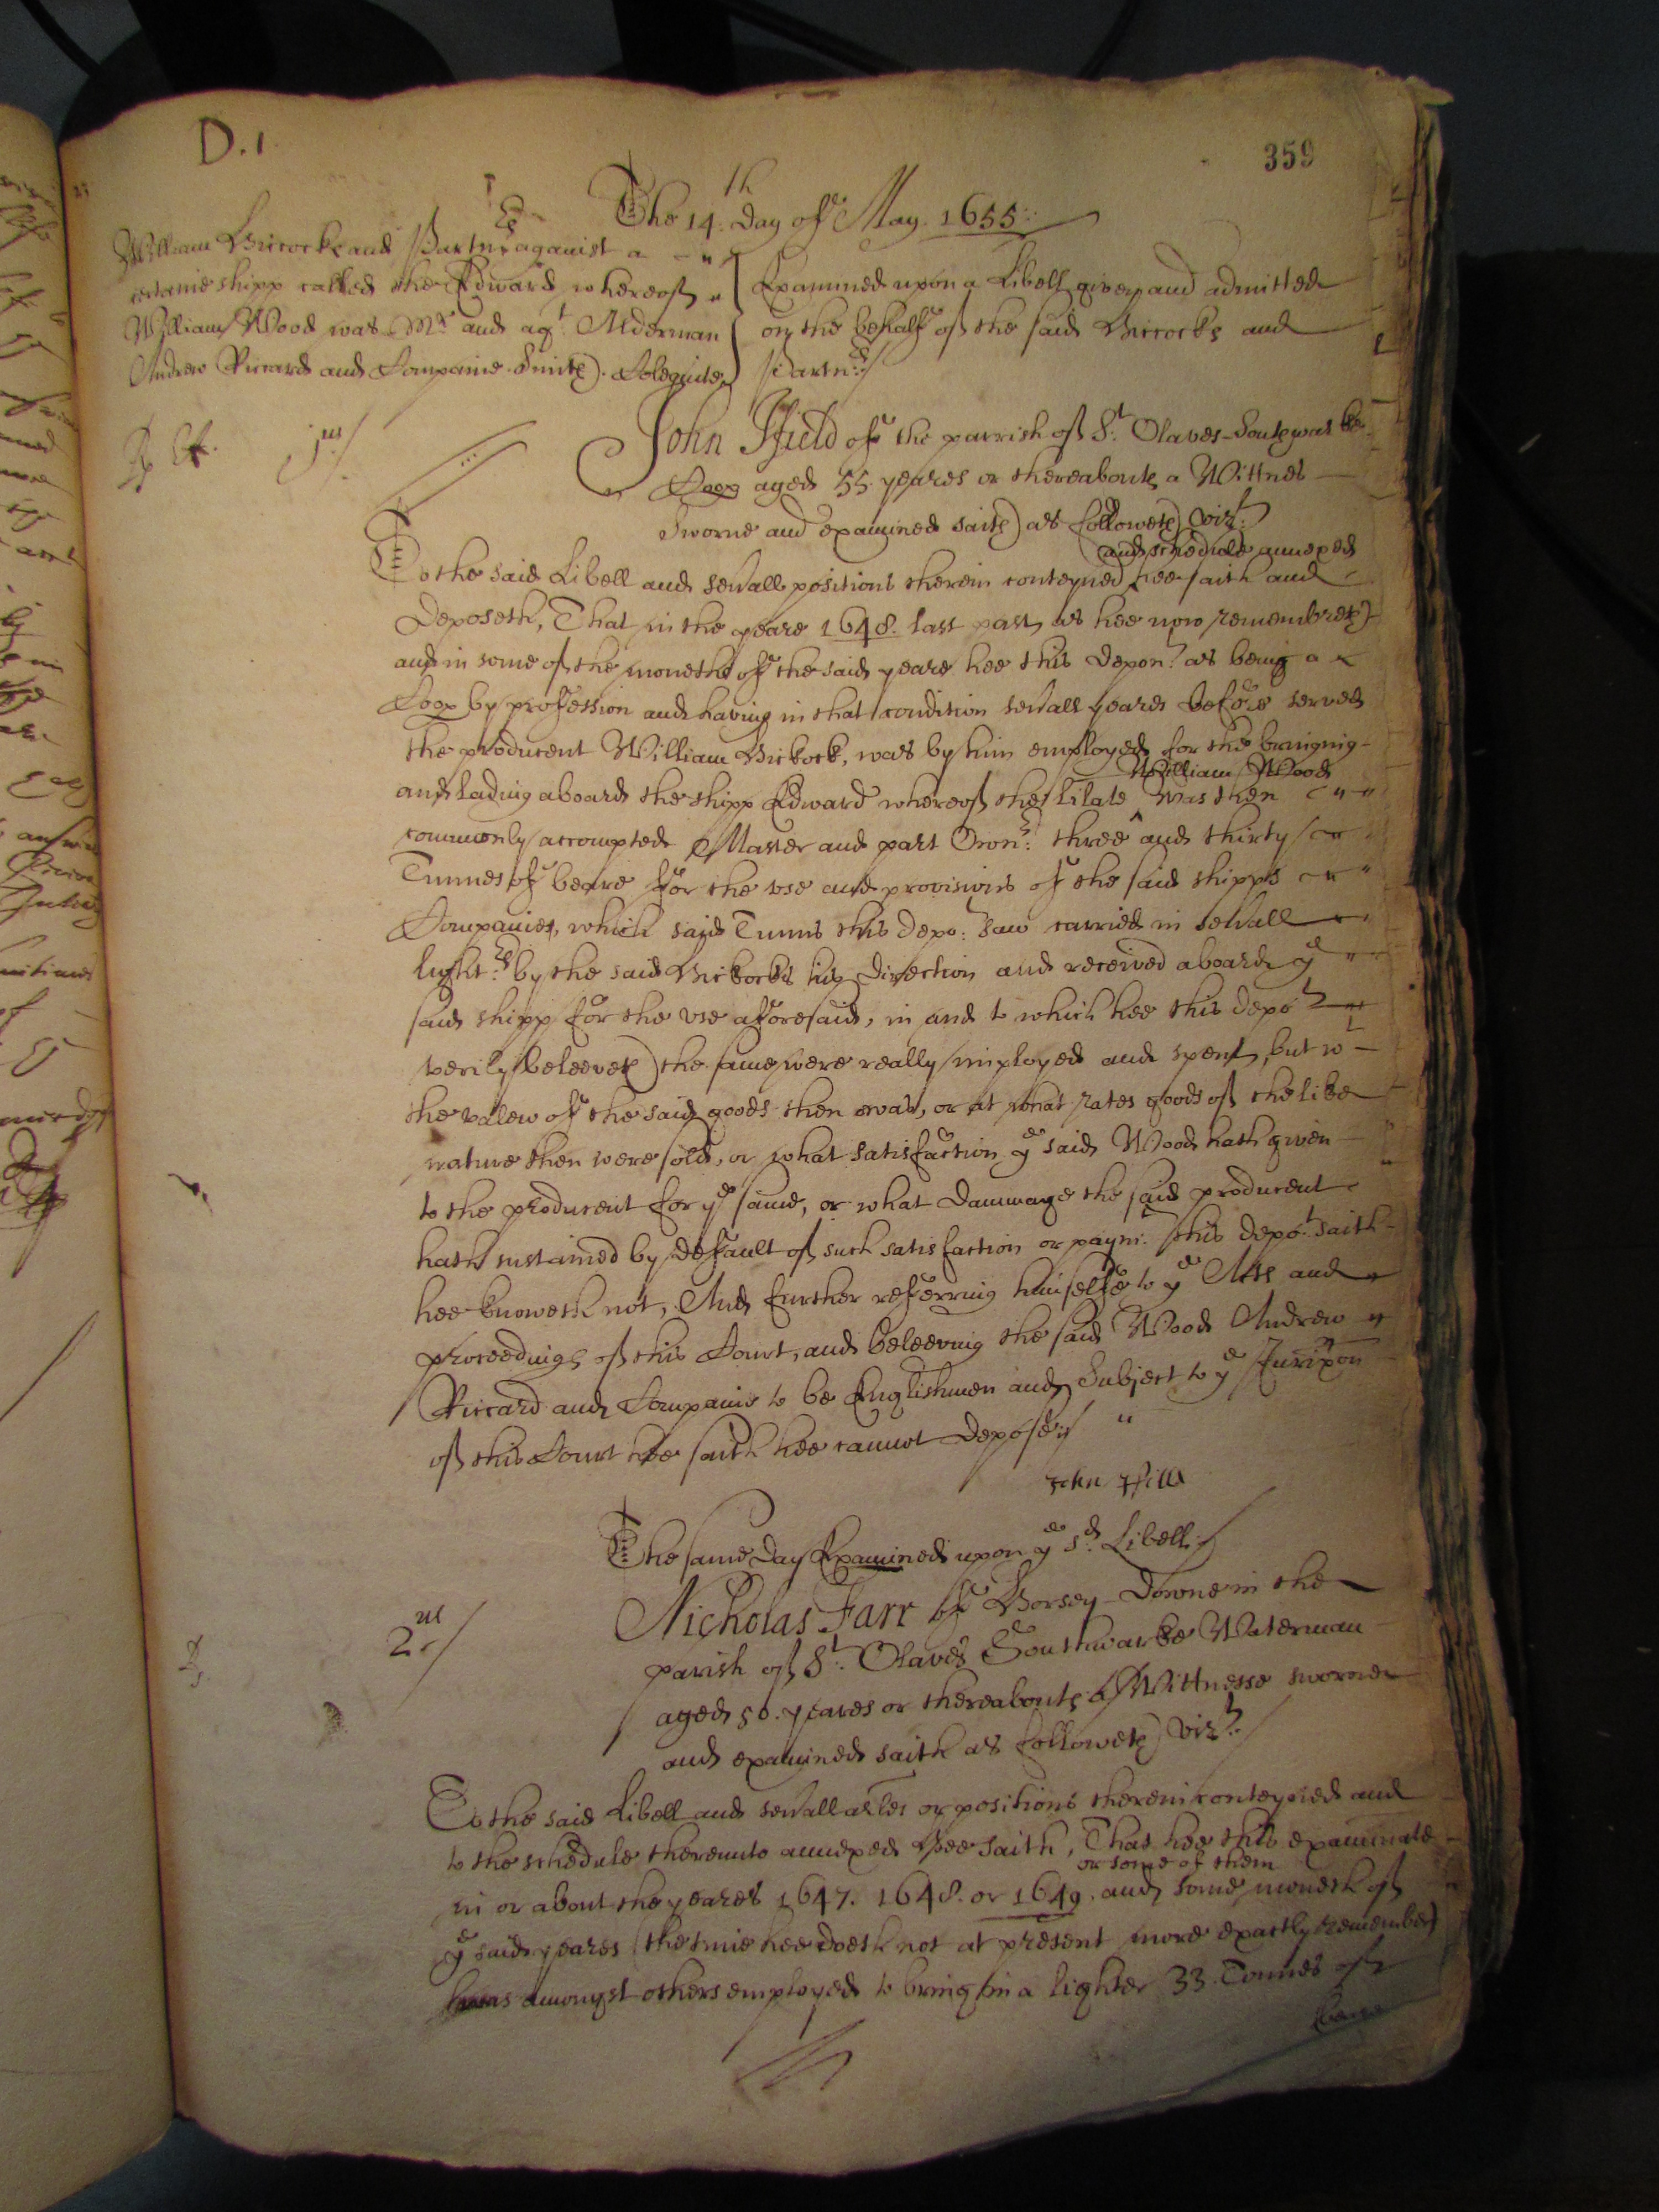 D.1.
359
The 14th: day of May. 1655:
William Hiccocke and Partnrs against a
certaine shipp called the Edward whereof
William Wood was Mr and agt Alderman
Andrew Riccard and Companie. Smith). Colequite)
Examined upon a Libell given and admitted
on the behalf of the said Hiccocks and
Partnrs:/
1us/.
John Ffield of the parrish of St. Olaves-Southwarke
Coop aged 55 yeares or thereabouts a Wittnes
Sworne and examined saith) as followeth) vizt:
and schedule annexed
To the said Libell and sevall positions therein conteyned hee saith and
deposeth, That in the yeare 1648. last past, as hee now remembreth)
and in some of the moneths of the said yeare hee this depont as being a
Coop by profession and having in that condition sevall yeares before served
the producent William Hickock, was by him employed for the bringing
William Wood
and lading aboard the shipp Edward whereof the lilate was then
commonly accompted Master and part Ownr: three and thirty
Tunnes of beare for the use and provisions of the said shipps
Companies, which said Tunns this depot: saw carried in sevall
lightrs by the said Hickocks his direction and received aboard ye
said shipp for the use aforesaid, in and to which hee this depot
verily beleeveth) the same were really imployed and spent, but wt
the valew of the said goods then was, or at what rates goods of the like
nature then were sold, or what satisfaction ye said Wood hath given
to the producent for ye same, or what dammage the said producent
hath sustained by default of such satisfaction or paymt. this depot: saith
hee knoweth not, And further referring himselfe to ye Acts and
proceedings of this Court, and beleeving the said Wood Andrew
Riccard and Companie to be Englishmen and Subject to ye Jurixon
of this Court hee saith hee cannot depose:/
John Ffilld
The same day Examined upon ye sd. Libell:/
2us./
Nicholas Farr of Horsey-downe in the
parish of St: Olaves Southwarke Waterman
aged 50. yeares or thereabouts a Wittnesse sworne
and examined saith as followeth) vizt:/
To the said Libell and sevall arles or positions therein conteyned and
to the schedule thereunto annexed hee saith, That hee this examinate
or some of them
in or about the yeares 1647. 1648. or 1649. and some moneth of
ye said yeares (the time hee doeth not at present more exactly remember)
was amongst others employed to bring in a lighter 33. Tonnes of
beare